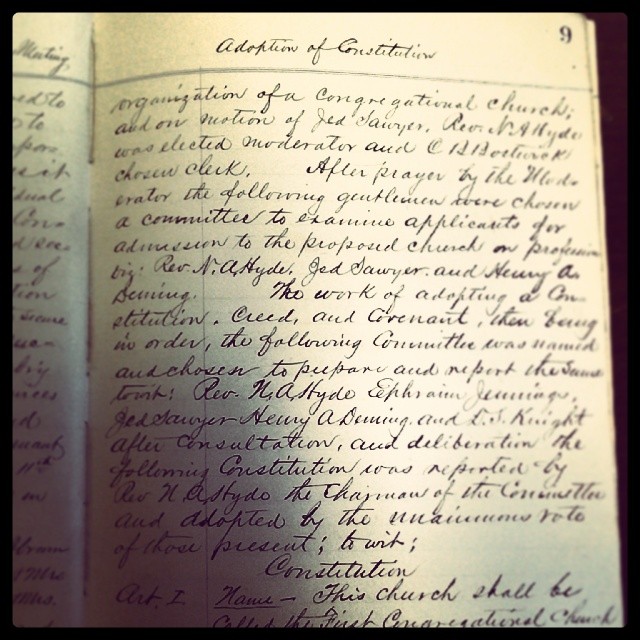 Meeting,
9
Adoption of Constitution
organization of a congregational church;
and on motion of Jed Sawyer, Rev. N. A Hyde
was elected moderator and C B Bostwick
chosen clerk. After prayer by the Mod-
erator the following gentlemen were chosen
a committee to examine applicants for
admission to the proposed church on profession
viz: Rev. N. A Hyde, Jed Sawyer, and Henry A
Deming. The work of adopting a Con-
stitution, Creed, and Covenant, then being
in order, the following Committee was named
and chosen to prepare and report the same
towit: Rev. N. A Hyde Ephraim Jennings,
Jed Sawyer Henry A Deming, and L. S. Knight
after consultation, and deliberation the
following Constitution was reported by
Rev N A Hyde the Chairman of the Committee
and adopted by the unaimous vote
of those present; to wit;
Constitution
Art. I Name – This church shall be
called the First Congregational Church